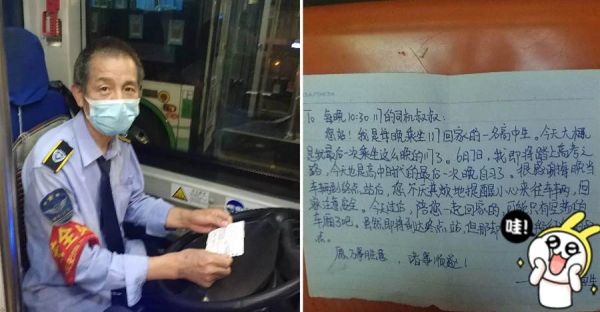 安全员
To 每晚10:30 117的司机叔叔：
您好！我是每晚乘坐117回家的一名高中生。今天大概
是我最后一次乘坐这么晚的117了。6月7日，我即将踏上高考之
路，今天也是高中时代的最后一次晚自习。很感谢每晚当
车辆到终点站后，您不厌其烦地提醒小心来往车辆，回
家注意安全。今天过后，陪您一起回家的，可能只有空荡的
车厢了吧。虽然即将到达终点站，但那
点。
愿万事胜意，诸事顺遂！
哇!
生